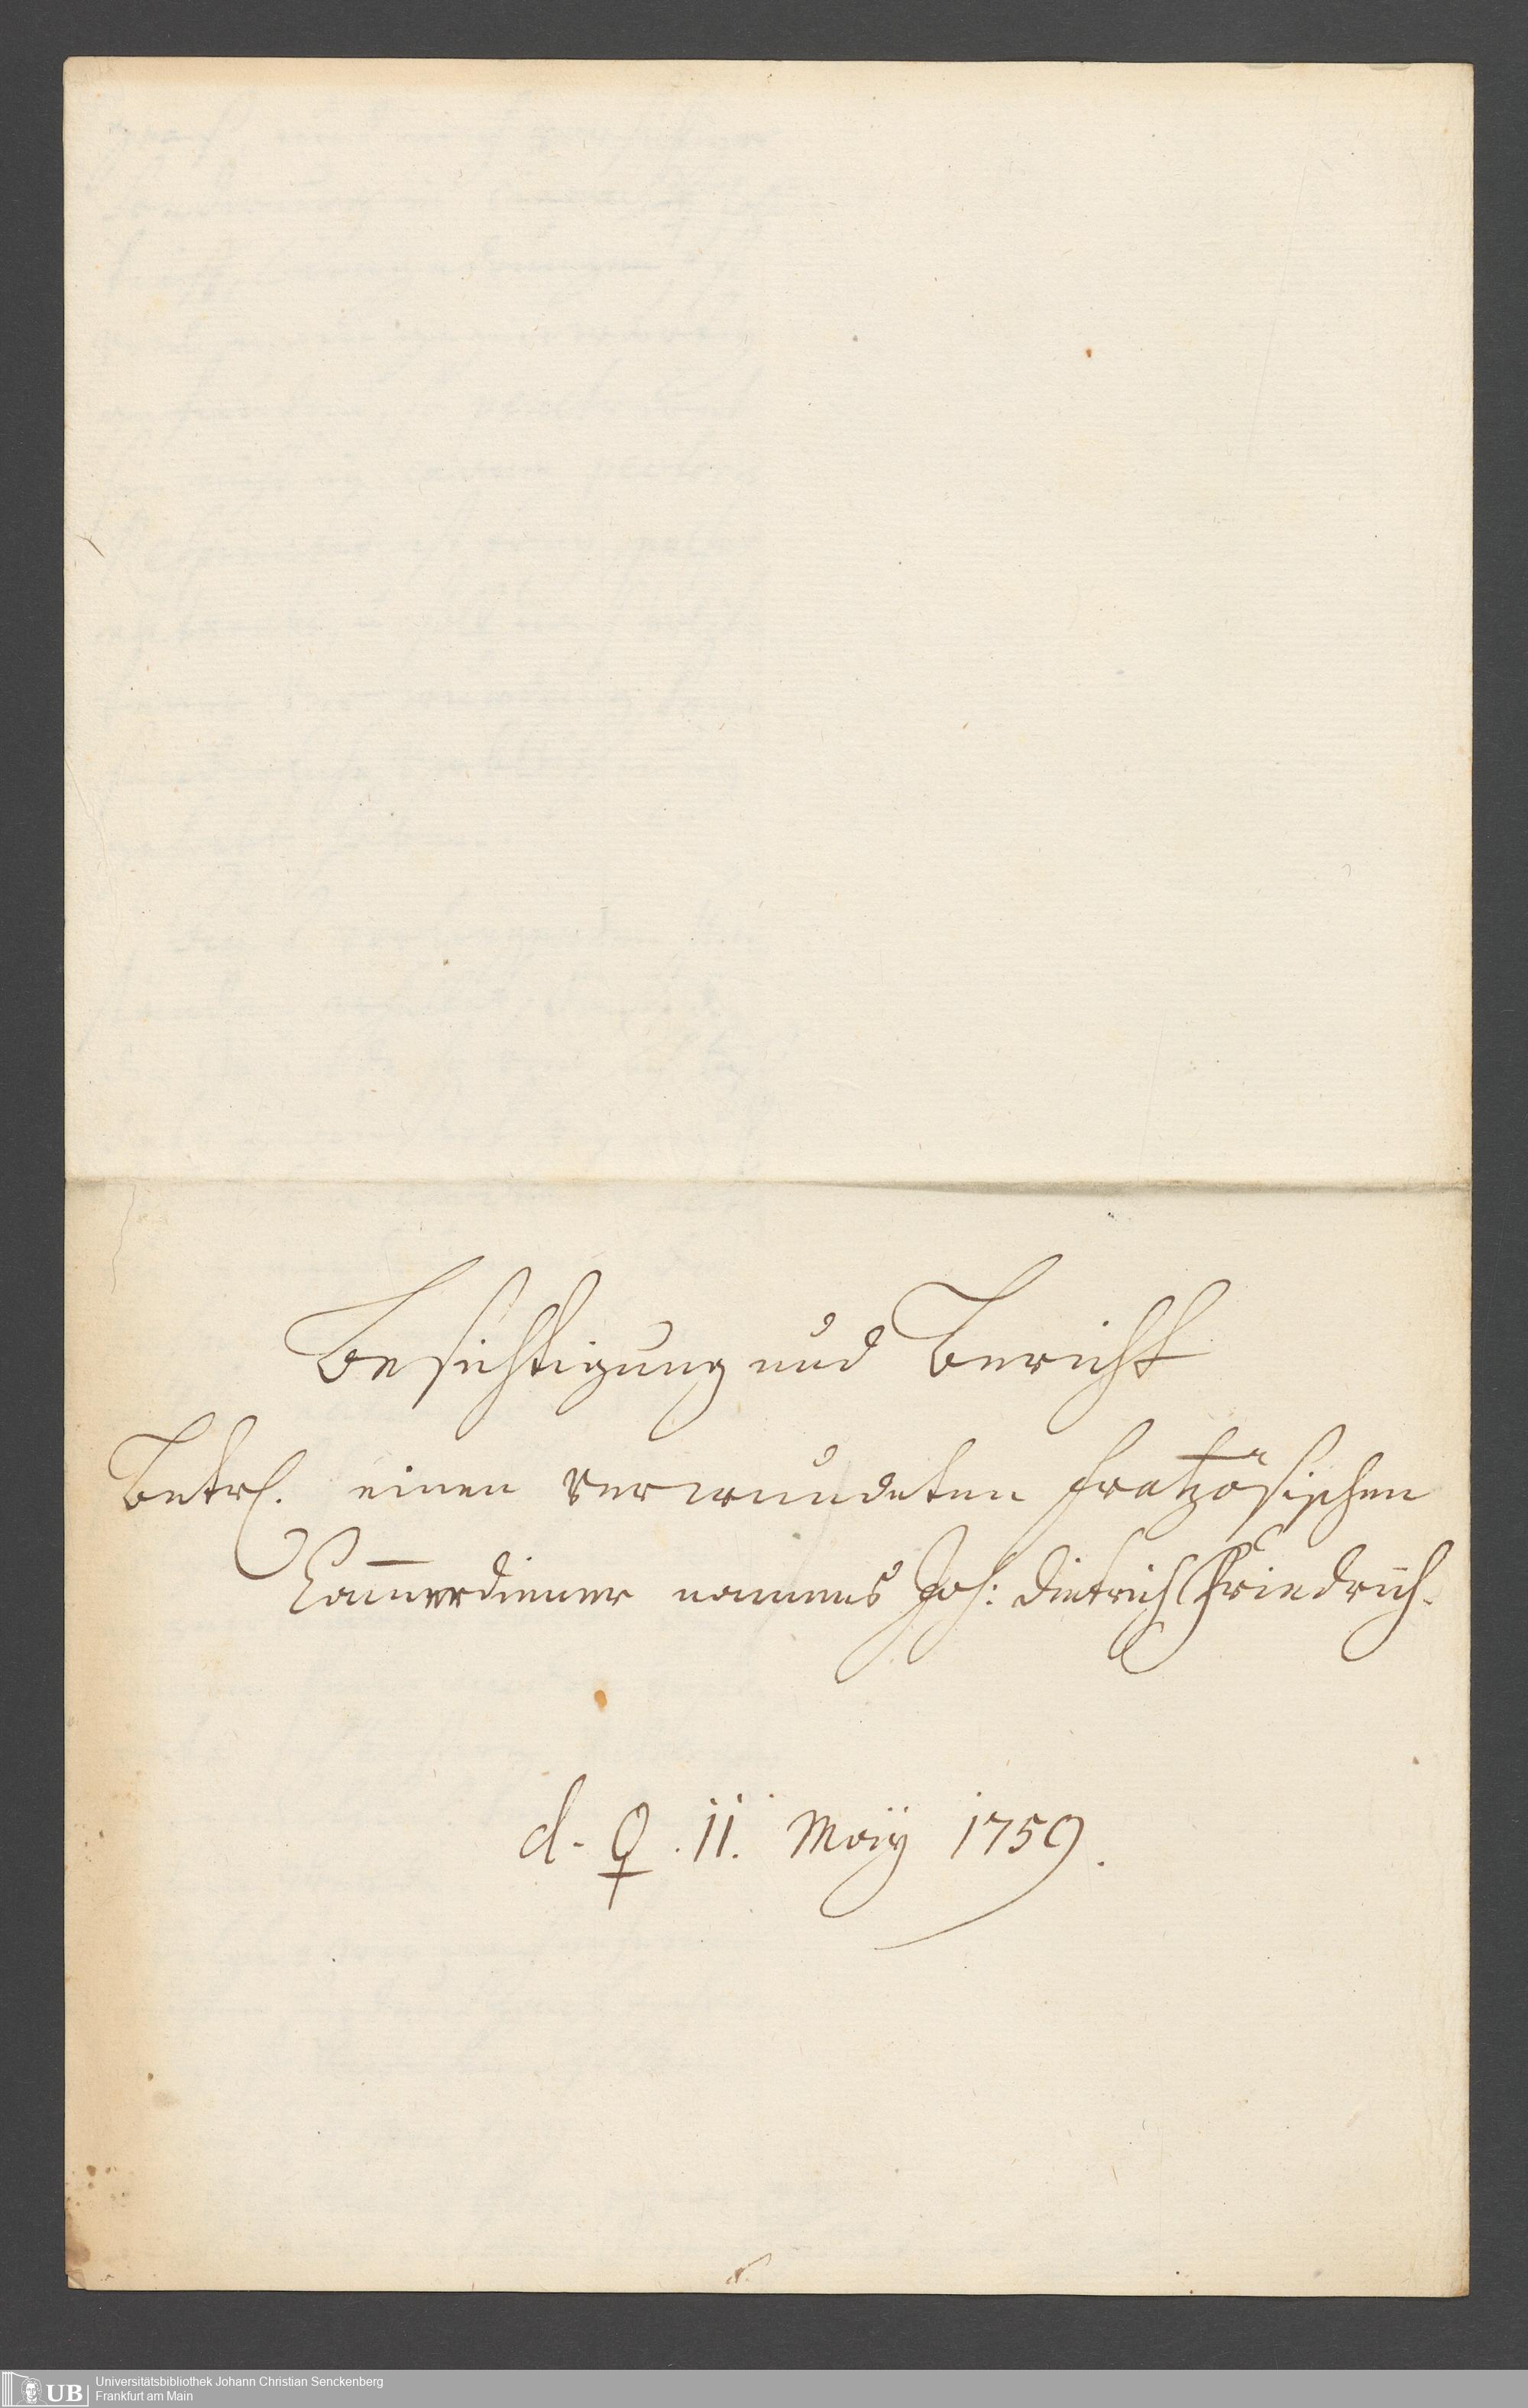 Besichtigung und Bericht
Betrf. einen verwundeten frantzösischen
Cam̅erdiener nammens Joh: Dietrich Friedrich.
d. ♀. 11. Maÿ 1759.
UB
Universitätsbibliothek Johann Christian Senckenberg
Frankfurt am Main